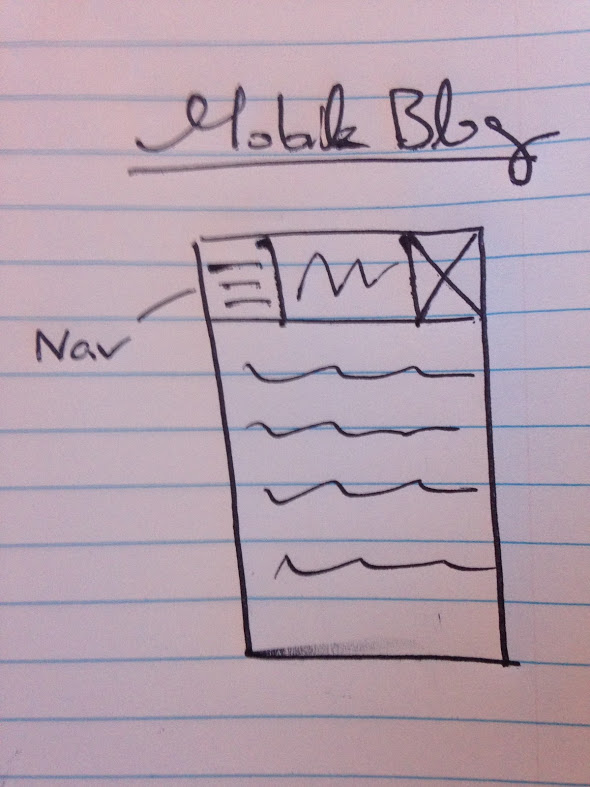 Mobile Blog
Nav